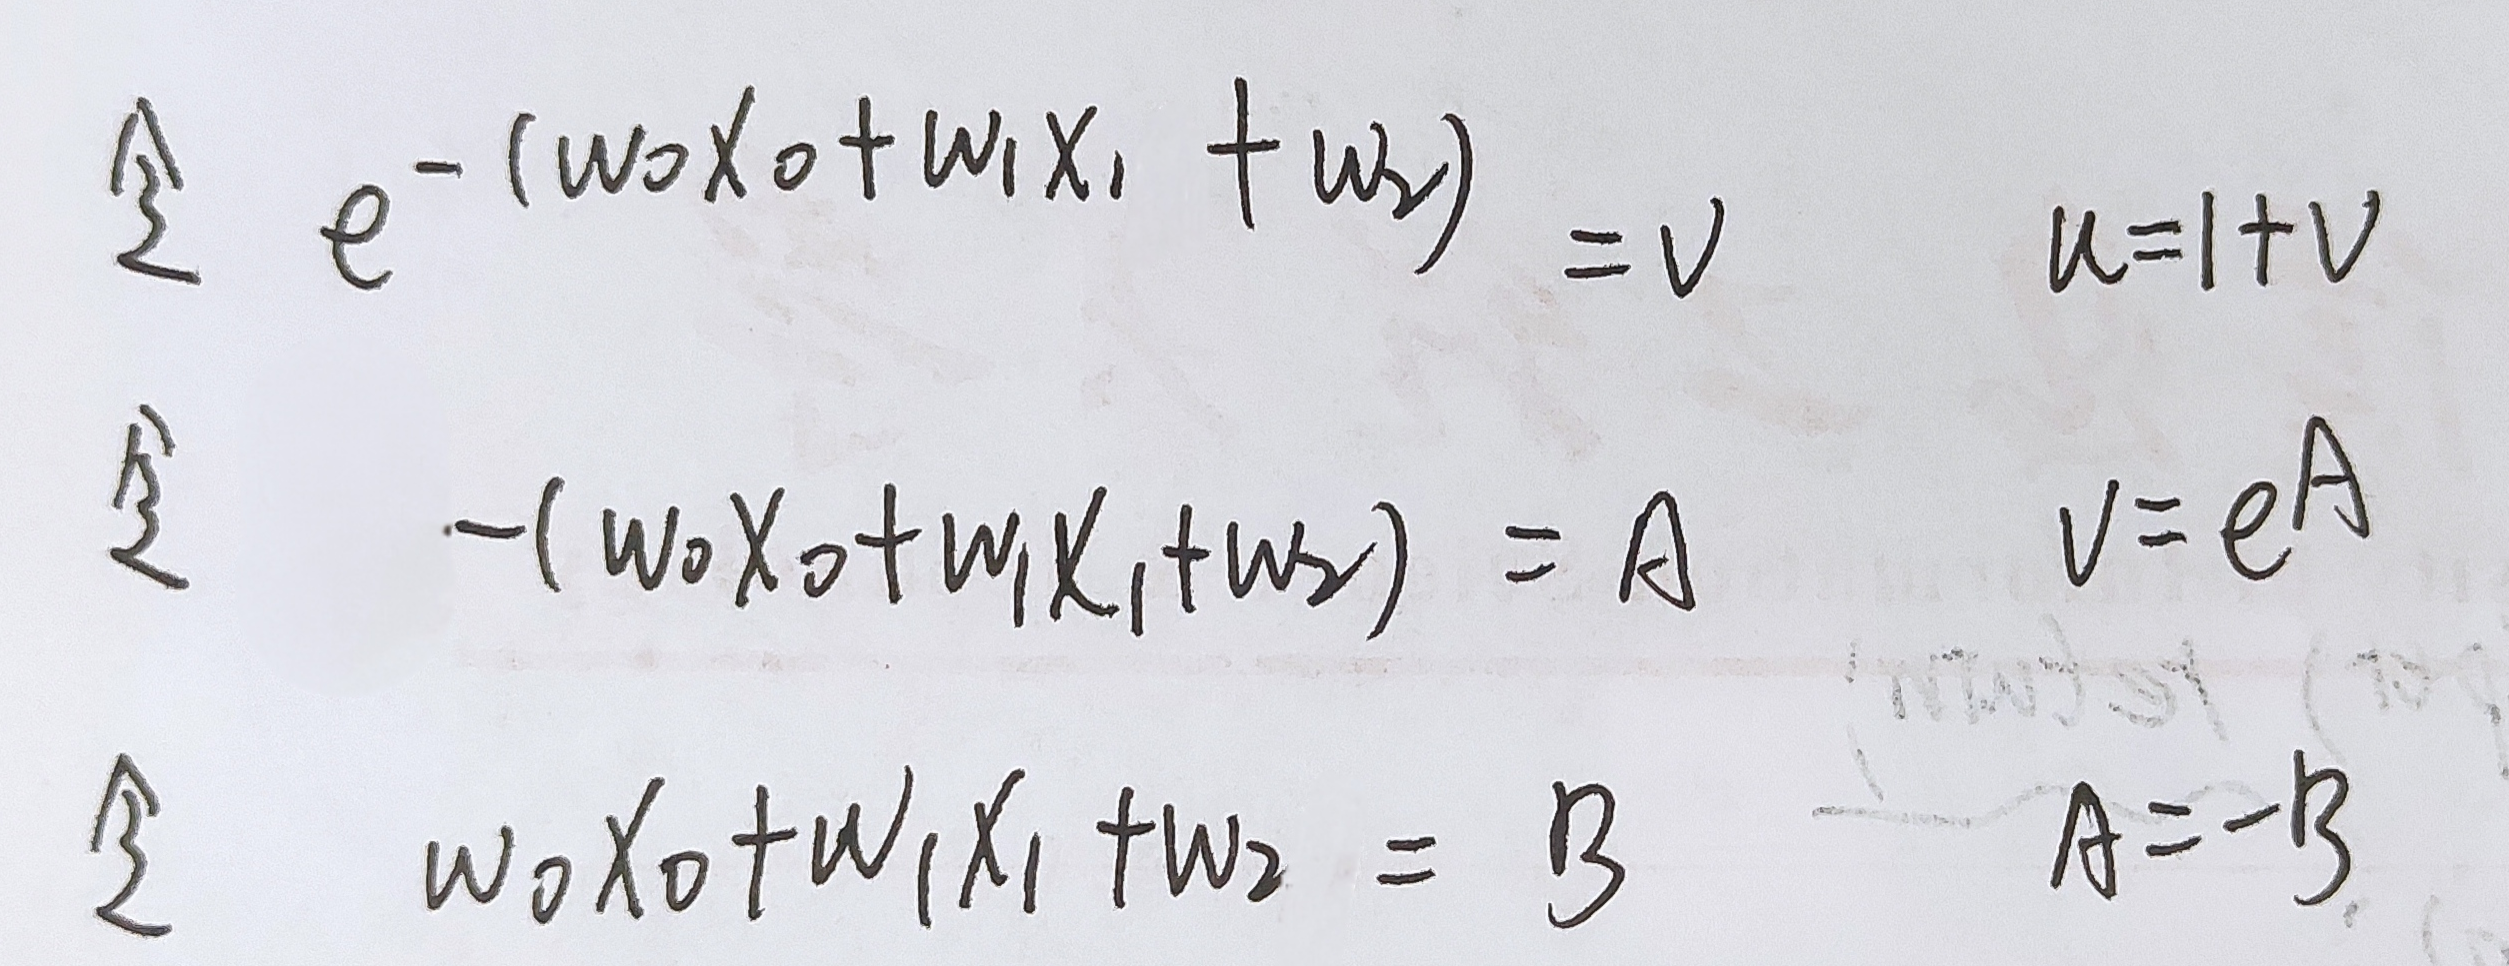 全 e^-(w₀x₀+w₁x₁+w₂) =v u=1+v
全 -(w₀x₀+w₁x₁+w₂) = A v=e^A
全 w₀x₀+w₁x₁+w₂ = B A=-B